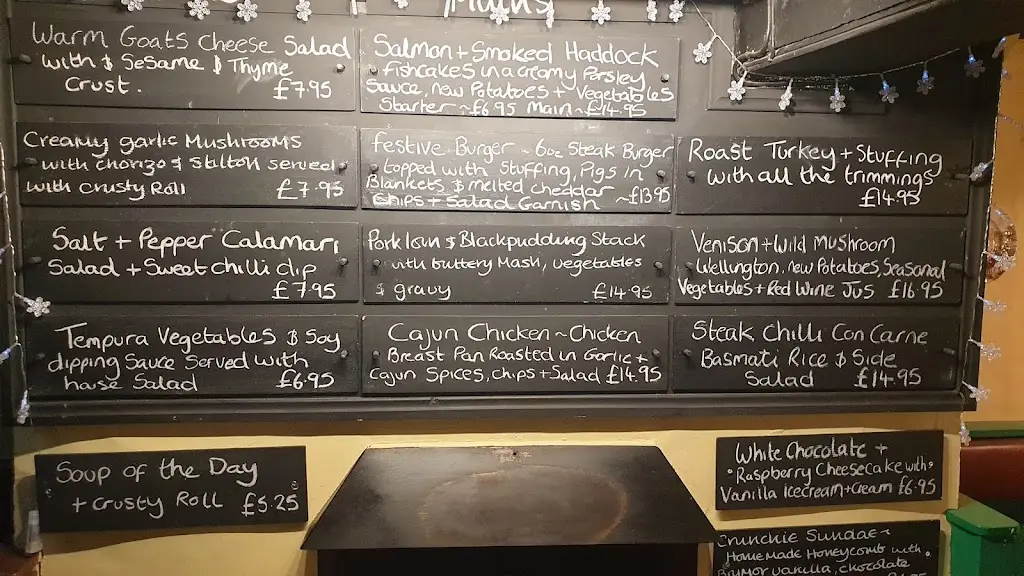 Mains
Warm Goats Cheese Salad
with & Sesame & Thyme
Crust.
£7.95
Creamy garlic Mushrooms
with chorizo & Stilton served
with crusty Roll £7.95
Salt + Pepper Calamari
Salad + Sweet chilli dip
£7.95
Tempura Vegetables & Soy
dipping Sauce Served with
house Salad £6.95
Salmon + Smoked Haddock
fishcakes in a creamy Parsley
Sauce, new Potatoes + Vegetables
Starter ~ £6.95 Main ~ £14.95
Festive Burger ~ 6oz Steak Burger
topped with Stuffing, Pigs in
Blankets & melted cheddar
Chips + Salad Garnish ~£13.95
Pork loin & Blackpudding Stack
with buttery Mash, vegetables
& gravy £14.95
Cajun Chicken ~ Chicken
Breast Pan Roasted in Garlic +
Cajun Spices, chips + Salad £14.95
Roast Turkey + Stuffing
with all the trimmings
£14.95
Venison + Wild Mushroom
Wellington, new Potatoes, Seasonal
Vegetables + Red Wine Jus £16.95
Steak Chilli Con Carne
Basmati Rice & Side
Salad £14.95
Soup of the Day
+ Crusty Roll £5.25
White Chocolate +
Raspberry Cheesecake with
Vanilla Icecream + Cream £6.95
Crunchie Sundae ~
Homemade Honeycomb with
vanilla, chocolate